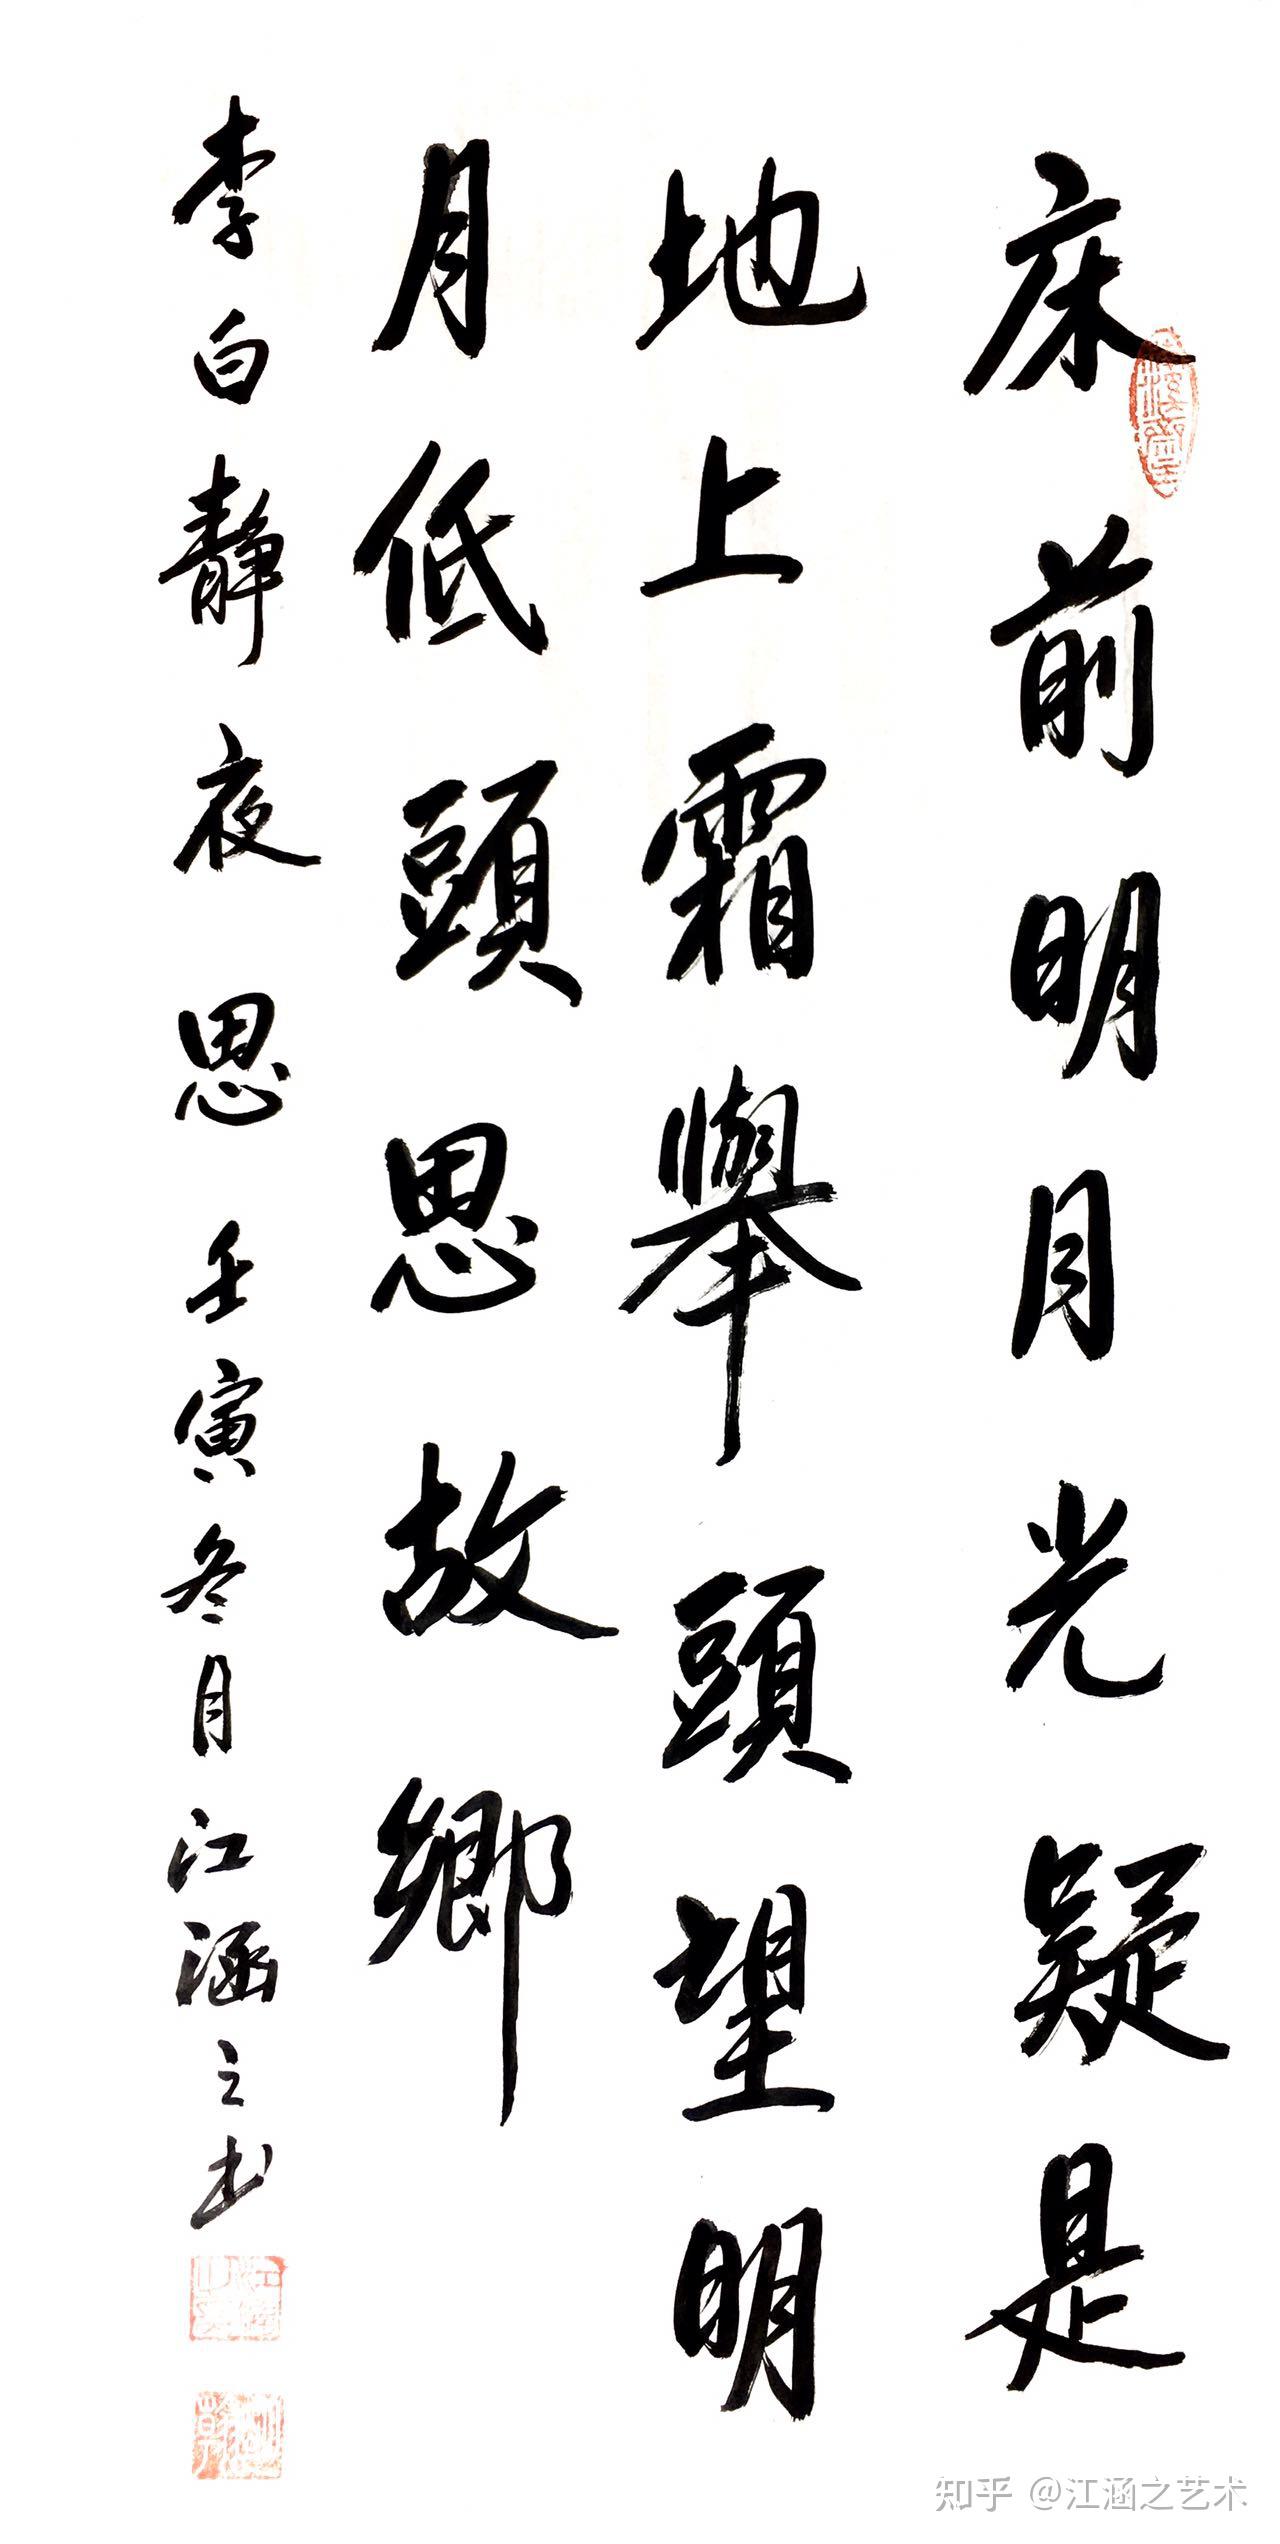 床前明月光疑是
地上霜舉頭望明
月低頭思故鄉
李白靜夜思 壬寅冬月江涵之书
知乎 @江涵之艺术